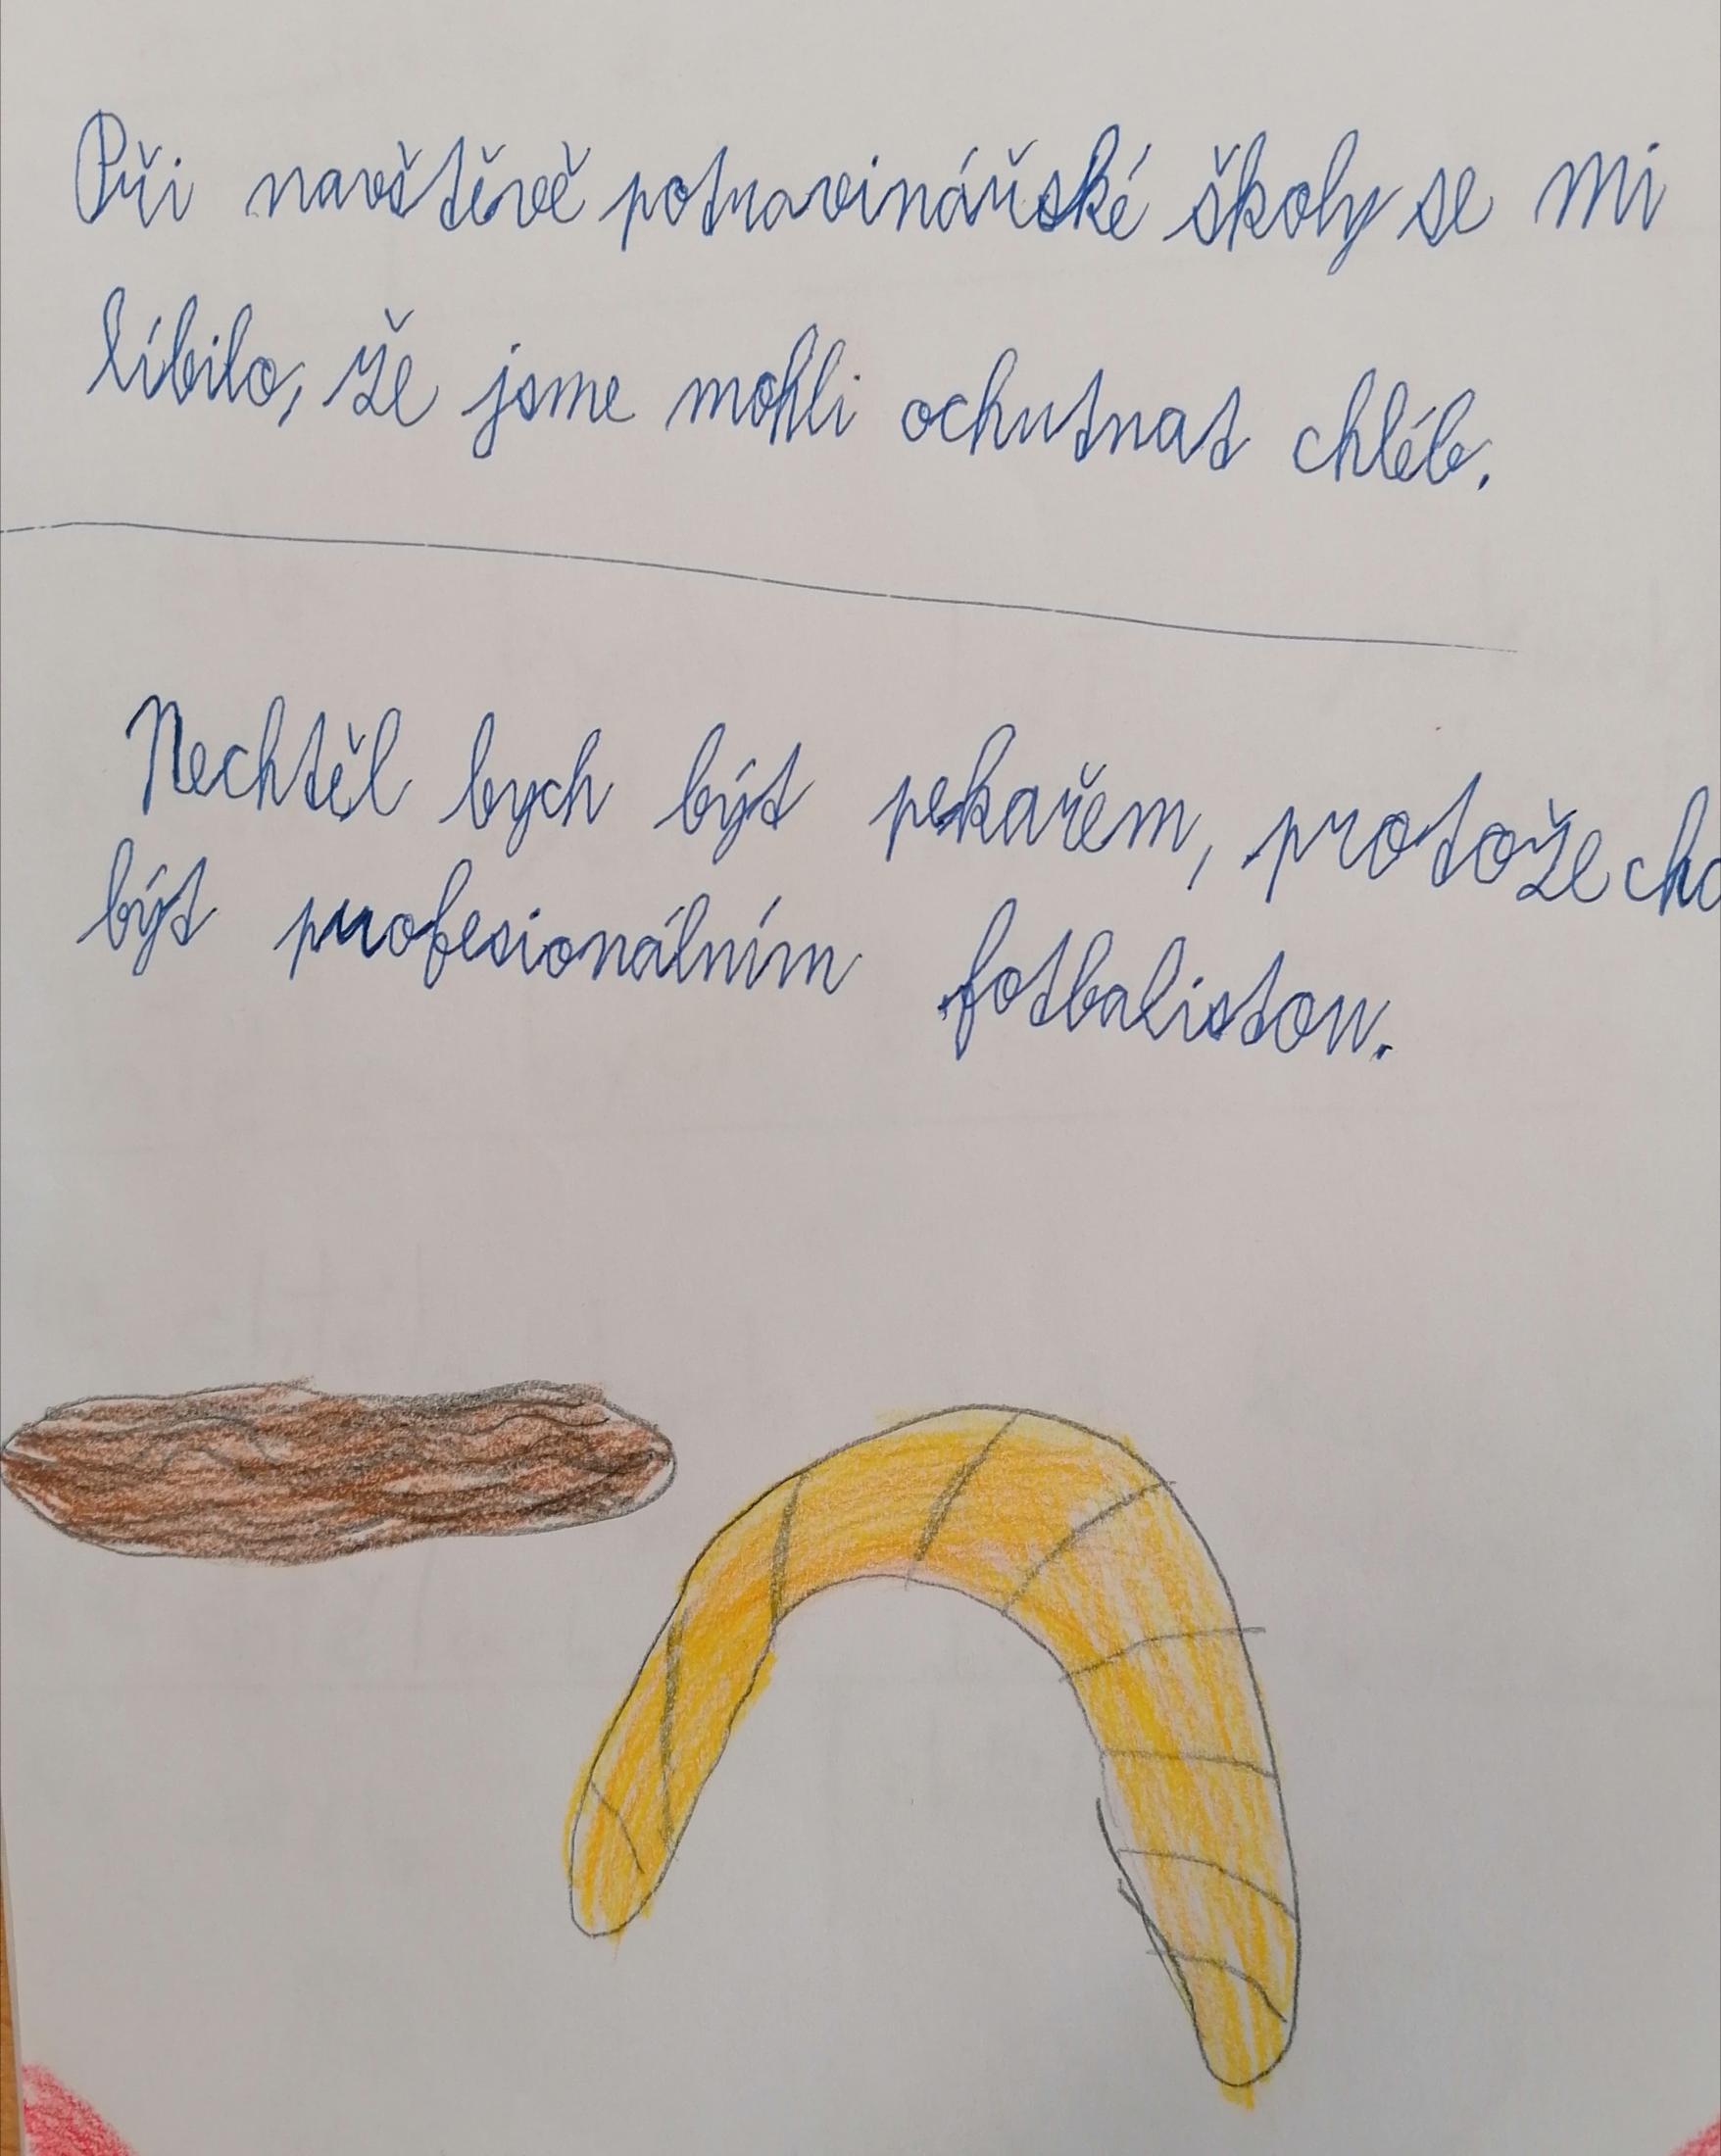 Při navštěvě potravinářské školy se mi
líbilo, že jsme mohli ochutnat chléb.
Nechtěl bych být pekařem, protože
být profesionálním fotbalistou.